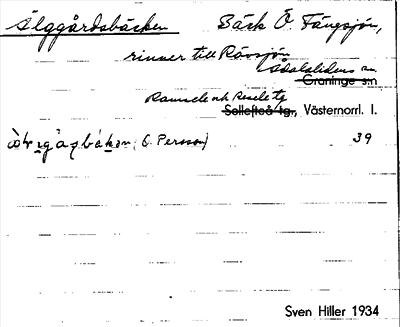 Älggårdsbäcken Bäck Ö. Fängsjön,
rinner till Rävsjön
Ådalslidens sn
Graninge s:n
Ramsele och Resele tg
Sollefteå tg., Västernorrl. l.
(E. Persson) 39
Sven Hiller 1934